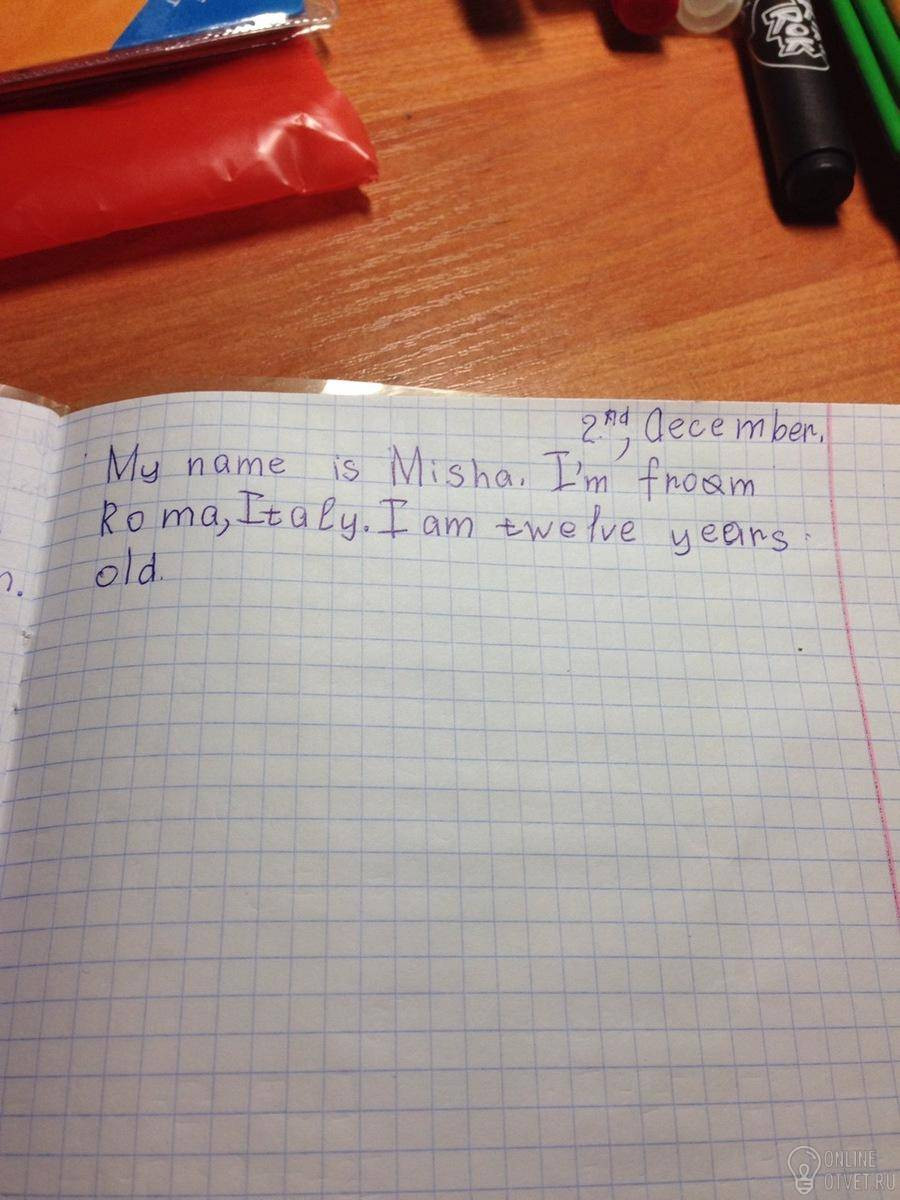 ROK
2nd, december.
My name is Misha. I'm froam
Roma, Italy. I am twelve years
old.
n.
ONLINE-
OTVET.RU